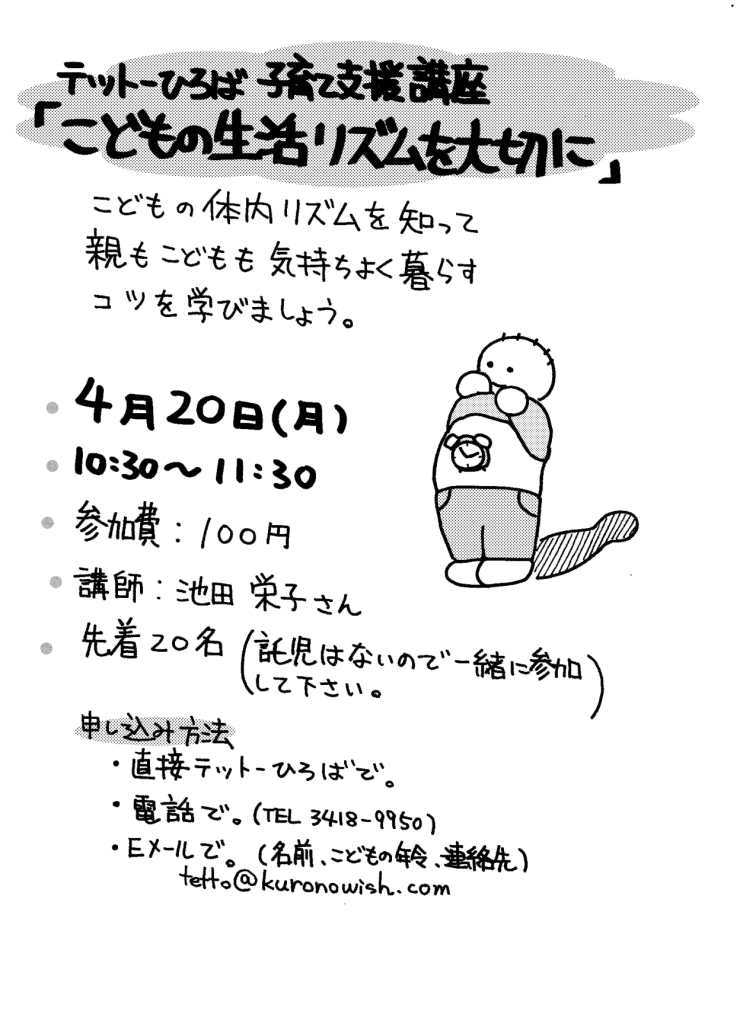 テットーひろば 子育て支援講座
「こどもの生活リズムを大切に」
こどもの体内リズムを知って
親もこどもも気持ちよく暮らす
コツを学びましょう。
4月20日(月)
10:30〜11:30
参加費：100円
講師：池田 栄子さん
先着20名(託児はないので一緒に参加
して下さい。)
申し込み方法
・直接テットーひろばで。
・電話で。(TEL 3418-9950)
・Eメールで。(名前、こどもの年令、連絡先)
tetto@kuronowish.com